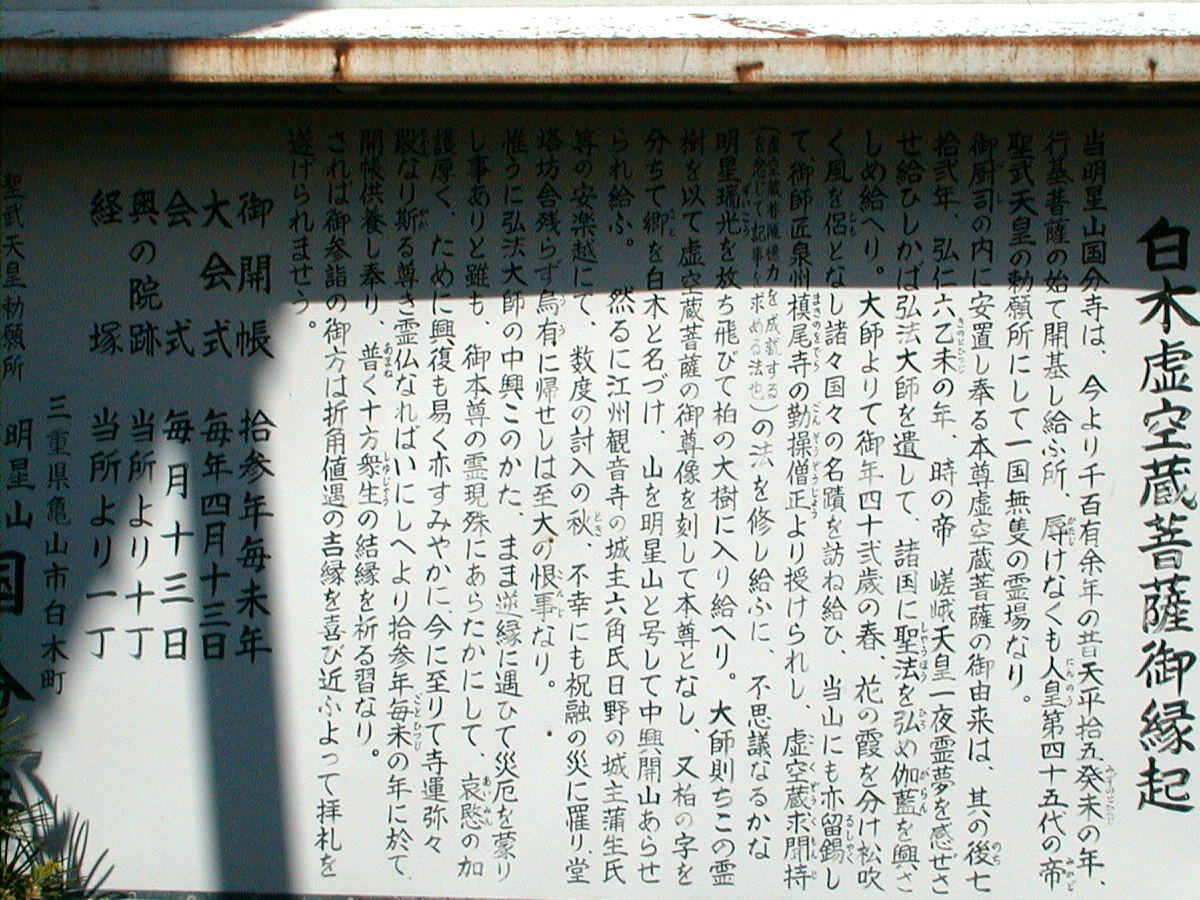 白木虚空蔵菩薩御縁起
当明星山国分寺は、今より千百有余年の昔天平拾五癸未の年、
行基菩薩の始て開基し給ふ所、辱けなくも人皇第四十五代の帝
聖武天皇の勅願所にして一国無隻の霊場なり。
御厨司の内に安置し奉る本尊虚空蔵菩薩の御由来は、其の後七
拾弐年、弘仁六乙未の年、時の帝 嵯峨天皇一夜霊夢を感ぜさ
せ給ひしかば弘法大師を遣して、諸国に聖法を弘め伽藍を興さ
しめ給へり。大師よりて御年四十弐歳の春、花の霞を分け松吹
く風を侶となし諸々国々の名蹟を訪ね給ひ、当山にも亦留錫し
て、御師匠泉州槙尾寺の勤操僧正より授けられし、虚空蔵求聞持
(虚空蔵菩薩憶力を成就する
を念じて記事を求める法也)の法を修し給ふに、不思議なるかな
明星瑞光を放ち飛びて柏の大樹に入り給へり。大師則ちこの霊
樹を以て虚空蔵菩薩の御尊像を刻して本尊となし、又柏の字を
分ちて郷を白木と名づけ、山を明星山と号して中興開山あらせ
られ給ふ。然るに江州観音寺の城主六角氏日野の城主蒲生氏
等の安楽越にて、数度の討入の秋、不幸にも祝融の災に罹り、堂
塔坊舎残らず烏有に帰せしは至大の恨事なり。
惟うに弘法大師の中興このかた、まま逆縁に遇ひて災厄を蒙り
し事ありと雖も、御本尊の霊現殊にあらたかにして、哀愍の加
護厚く、ために興復も易く亦すみやかに、今に至りて寺運弥々
殷なり斯る尊き霊仏なればいにしへより拾参年毎未の年に於て
開帳供養し奉り、普く十方衆生の結縁を祈る習なり。
されば御参詣の御方は折角値遇の吉縁を喜び近ふよって拝礼を
遂げられませう。
御開帳 拾参年毎未年
大会式 毎年四月十三日
会式 毎月十三日
興の院跡 当所より十丁
経塚 当所より一丁
三重県亀山市白木町
聖武天皇勅願所 明星山 国分